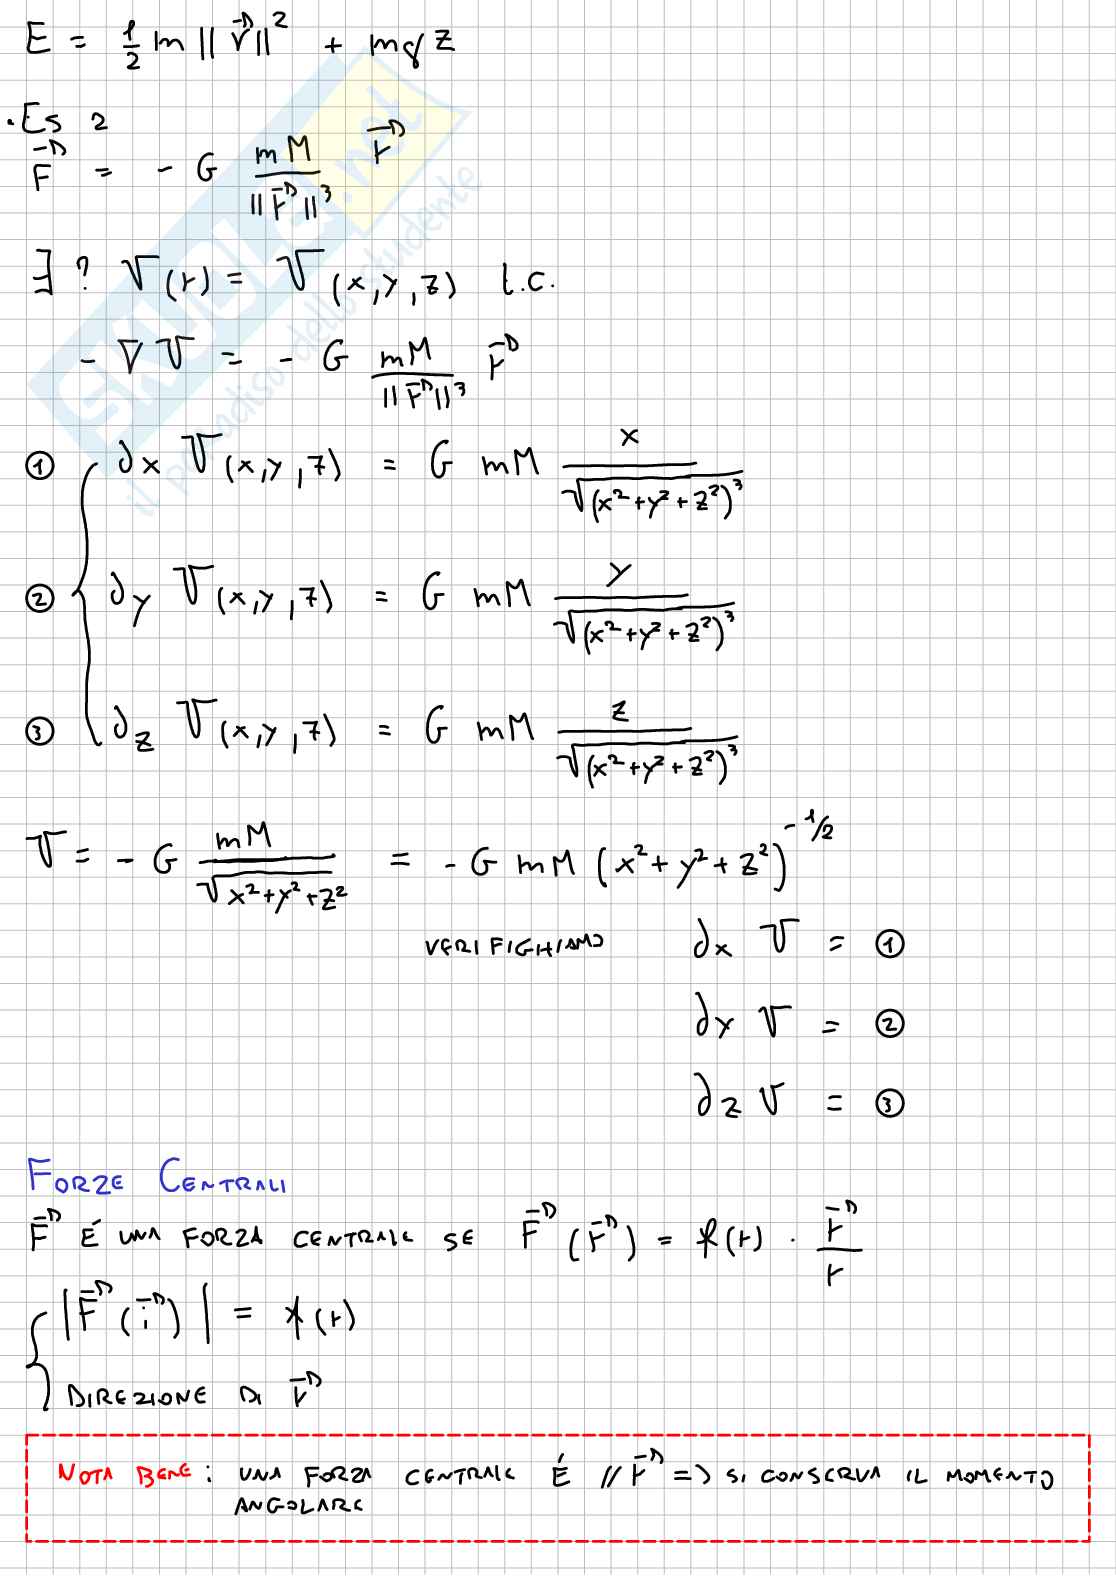 E = 1/2 m ||v⃗||² + mgz
. Es 2
F⃗ = - G mM/||r⃗||³ r⃗
∃? V(r) = V(x,y,z) t.c.
- ∇V = - G mM/||r⃗||³ r⃗
① ∂x V(x,y,z) = G mM x/√(x²+y²+z²)³
② ∂y V(x,y,z) = G mM y/√(x²+y²+z²)³
③ ∂z V(x,y,z) = G mM z/√(x²+y²+z²)³
V = - G mM/√x²+y²+z² = - G mM (x²+y²+z²)^-1/2
VERIFICHIAMO ∂x V = ①
∂y V = ②
∂z V = ③
FORZE CENTRALI
F⃗ É UNA FORZA CENTRALE SE F⃗(r⃗) = f(r) · r⃗/r
|F⃗(r⃗)| = f(r)
DIREZIONE DI r⃗
NOTA BENE: UNA FORZA CENTRALE É // r⃗ => SI CONSERVA IL MOMENTO
ANGOLARE
SKUOLA.net
il paradiso dello studente